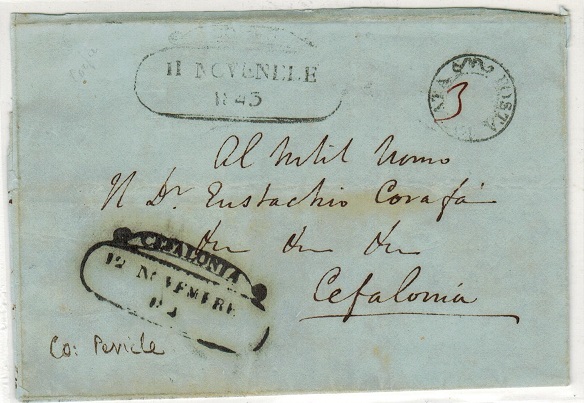 11 NOVEMBRE
1843
POSTA PAGATA
3
Al Nobil Uomo
Il Dr. Eustachio Corafà
Cefalonia
CEFALONIA
12 NOVEMBRE
Co: Pericle